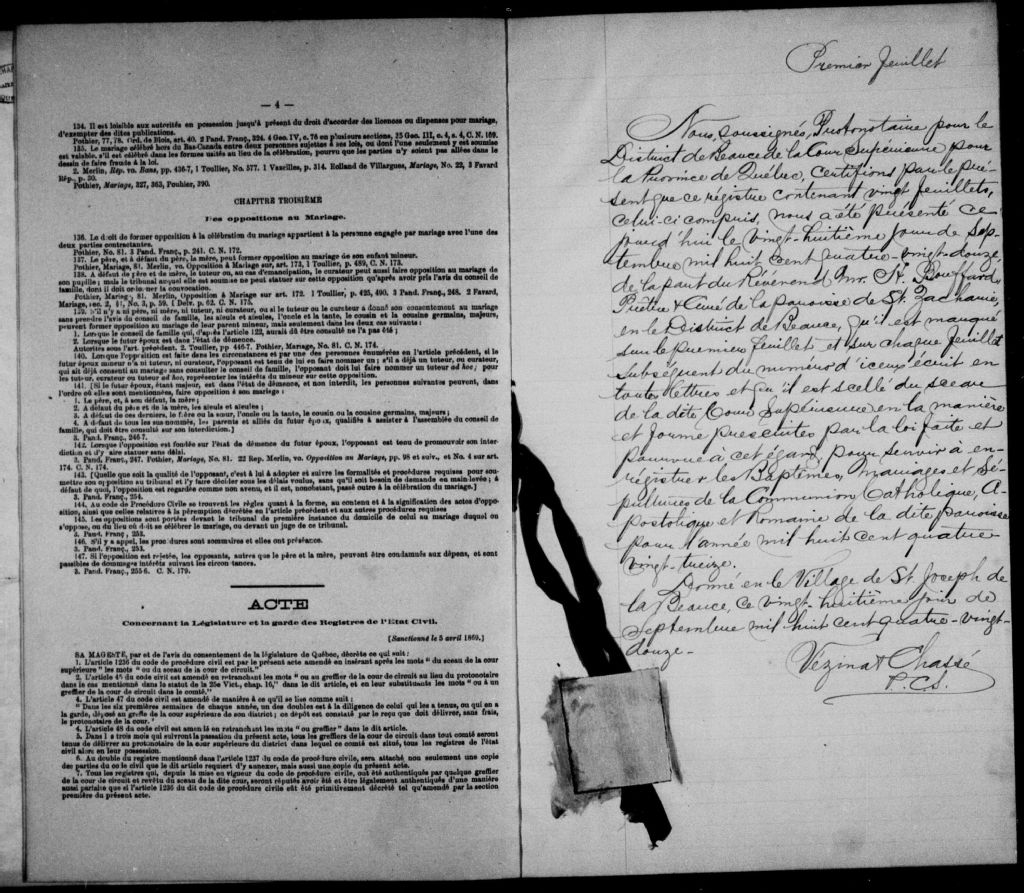 — 4 —
134. Il est loisible aux autorités en possession jusqu'à présent du droit d'accorder des licences ou dispenses pour mariage,
d'exempter des dites publications.
Pothier, 77, 78. Ord. de Blois, art. 40. 2 Pand. Franç., 324. 4 Geo. IV, c. 76 en plusieurs sections, 35 Geo. III, c. 4, s. 4, C. N. 169.
135. Le mariage célébré hors du Bas-Canada entre deux personnes sujettes à ses lois, ou dont l'une seulement y est soumise
est valable, s'il est célébré dans les formes usitées au lieu de la célébration, pourvu que les parties n'y soient pas allées dans le
dessein de faire fraude à la loi.
2. Merlin, Rép. vo. Bans, pp. 436-7, 1 Toullier, No. 577. 1 Vazilles, p. 314. Rolland de Villargues, Mariage, No. 22, 3 Favard
Rép., p. 30.
Pothier, Mariage, 327, 363, Pouhier, 390.
CHAPITRE TROISIÈME
Des oppositions au Mariage.
136. Le droit de former opposition à la célébration du mariage appartient à la personne engagée par mariage avec l'une des
deux parties contractantes.
Pothier, No. 81. 3 Pand. Franç., p. 241. C. N. 172.
137. Le père, et à défaut du père, la mère, peut former opposition au mariage de son enfant mineur.
Pothier, Mariage, 81. Merlin, vo. Opposition à Mariage, sur art. 173, 1 Toullier, p. 489, C. N. 173.
138. A défaut de père et de mère, le tuteur ou, au cas d'émancipation, le curateur peut aussi faire opposition au mariage de
son pupille; mais le tribunal auquel elle est soumise ne peut statuer sur cette opposition qu'après avoir pris l'avis du conseil de
famille, dont il doit ordonner la convocation.
Pothier, Mariage, 81. Merlin, Opposition à Mariage sur art. 172. 1 Toullier, p. 425, 490. 3 Pand. Franç., 248. 2 Favard,
Mariage, sec. 2, §1, No. 3, p. 59. 1 Delv. p. 62. C. N. 175.
139. S'il n'y a ni père, ni mère, ni tuteur, ni curateur, ou si le tuteur ou le curateur a donné son consentement au mariage
sans prendre l'avis du conseil de famille, les aïeuls et aïeules, l'oncle et la tante, le cousin et la cousine germains, majeurs,
peuvent former opposition au mariage de leur parent mineur, mais seulement dans les deux cas suivants :
1. Lorsque le conseil de famille qui, d'après l'article 122, aurait dû être consulté ne l'a pas été ;
2. Lorsque le futur époux est dans l'état de démence.
Autorités sous l'art. précédent. 2. Toullier, pp 416-7. Pothier, Mariage, No. 81. C. N. 174.
140. Lorsque l'opposition est faite dans les circonstances et par une des personnes énumérées en l'article précédent, si le
futur époux mineur n'a ni tuteur, ni curateur, l'opposant est tenu de lui en faire nommer un; s'il a déjà un tuteur, ou curateur,
qui ait déjà consenti au mariage sans consulter le conseil de famille, l'opposant doit lui faire nommer un tuteur ad hoc; pour
les tuteur, curateur ou tuteur ad hoc, représenter les intérêts du mineur sur cette opposition.
141. [Si le futur époux, étant majeur, est dans l'état de démence, et non interdit, les personnes suivantes peuvent, dans
l'ordre où elles sont mentionnées, faire opposition à son mariage :
1. Le père, et, à son défaut, la mère ;
2. A défaut du père et de la mère, les aïeuls et aïeules ;
3. A défaut de ces derniers, le frère ou la sœur, l'oncle ou la tante, le cousin ou la cousine germains, majeurs ;
4. A défaut de tous les sus nommés, les parents et alliés du futur époux, qualifiés à assister à l'assemblée du conseil de
famille, qui doit être consulté sur son interdiction.]
3. Pand. Franç., 246 7.
142. Lorsque l'opposition est fondée sur l'état de démence du futur époux, l'opposant est tenu de promouvoir son inter-
diction et d'y faire statuer sans délai.
3. Pand. Franç., 247. Pothier, Mariage, No. 81. 22 Rep. Merlin, vo. Opposition au Mariage, pp. 98 et suiv., et No. 4 sur art.
174. C. N. 174.
143. [Quelle que soit la qualité de l'opposant, c'est à lui à adopter et suivre les formalités et procédures requises pour sou-
mettre son opposition au tribunal et l'y faire décider sous les délais voulus, sans qu'il soit besoin de demande en main-levée ; à
défaut de quoi, l'opposition est regardée comme non avenu, et il est, nonobstant, passé outre à la célébration du mariage.]
3. Pand. Franç., 254.
144. Au Code de Procédure Civile se trouvent les règles quant à la forme, au contenu et à la signification des actes d'oppo-
sition, ainsi que celles relatives à la péremption décrétée en l'article précédent et aux autres procédures requises
145. Les oppositions sont portées devant le tribunal de première instance du domicile de celui au mariage duquel on
s'oppose, ou du lieu où doit se célébrer le mariage, ou devant un juge de ce tribunal.
3. Pand. Franç., 253.
146. S'il y a appel, les procédures sont sommaires et elles ont préséance.
3. Pand. Franç., 253.
147. Si l'opposition est rejetée, les opposants, autres que le père et la mère, peuvent être condamnés aux dépens, et sont
passibles de dommages intérêts suivant les circonstances.
3. Pand. Franç., 255-6. C. N. 179.
ACTE
Concernant la Législature et la garde des Registres de l'Etat Civil.
[Sanctionné le 5 avril 1869.]
SA MAGESTÉ, par et de l'avis du consentement de la législature de Québec, décrète ce qui suit :
1. L'article 1236 du code de procédure civil est par le présent acte amendé en insérant après les mots " du sceau de la cour
supérieure " les mots " ou du sceau de la cour de circuit."
2. L'article 45 du code civil est amendé en retranchant les mots " ou au greffier de la cour de circuit au lieu du protonotaire
dans le cas mentionné dans le statut de la 25e Vict., chap. 16," dans le dit article, et en leur substituant les mots " ou à un
greffier de la cour de circuit dans le comté."
4. L'article 47 du code civil est amendé de manière à ce qu'il se lise comme suit :
" Dans les six premières semaines de chaque année, un des doubles est à la diligence de celui qui les a tenus, ou qui en a
la garde, déposé au greffe de la cour supérieure de son district ; ce dépôt est constaté par le reçu que doit délivrer, sans frais,
le protonotaire de la cour. "
4. L'article 48 du code civil est amendé en retranchant les mots " ou greffier " dans le dit article.
5. Dans les trois mois qui suivront la passation du présent acte, tous les greffiers de la cour de circuit dans tout comté seront
tenus de délivrer au protonotaire de la cour supérieure du district dans lequel ce comté est situé, tous les registres de l'état
civil alors en leur possession.
6. Au double du registre mentionné dans l'article 1237 du code de procédure civile, sera attaché non seulement une copie
des parties du code civil que le dit article requiert d'y annexer, mais aussi une copie du présent acte.
7. Tous les registres qui, depuis la mise en vigueur du code de procédure civile, ont été authentiqués par quelque greffier
de la cour de circuit et revêtu du sceau de la dite cour, seront réputés avoir été et être légalement authentiqués d'une manière
aussi parfaite que si l'article 1236 du dit code de procédure civile eût été primitivement décrété tel qu'amendé par la section
première du présent acte.
Premier feuillet
Nous, soussignés, Protonotaire pour le
District de Beauce de la Cour Supérieure pour
la Province de Québec, certifions par le pré-
sent que ce régistre contenant vingt feuillets,
celui-ci compris, nous a été présenté ce-
jourd'hui le vingt-huitième jour de sep-
tembre mil huit cent quatre-vingt-douze,
de la part du Révérend Mr. A. Bouffard,
Prêtre & Curé de la paroisse de St. Zacharie,
en le District de Beauce, qu'il est marqué
sur le premier feuillet et sur chaque feuillet
subséquent du numéro d'iceux écrit en
toutes lettres et qu'il est scellé du sceau
de la dite Cour Supérieure en la manière
et forme prescrites par la loi faite et
pourvue à cet égard, pour servir à en-
registrer les Baptêmes, Mariages et Sé-
pultures de la Communion Catholique, A-
postolique et Romaine de la dite paroisse
pour l'année mil huit cent quatre
vingt-treize.
Donné en le Village de St. Joseph de
la Beauce, ce vingt-huitième jour de
septembre mil huit cent quatre-vingt-
douze -
Vézina & Chassé
P.C.S.